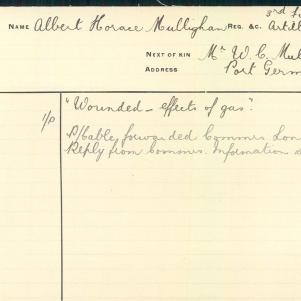 3rd
NAME Albert Horace Mullighan REG. &C. Artill
NEXT OF KIN Mr W. C. Mul
ADDRESS Port Germ
"Wounded - effects of gas".
P/Cable forwarded Commis Lon
Reply from Commis. Information